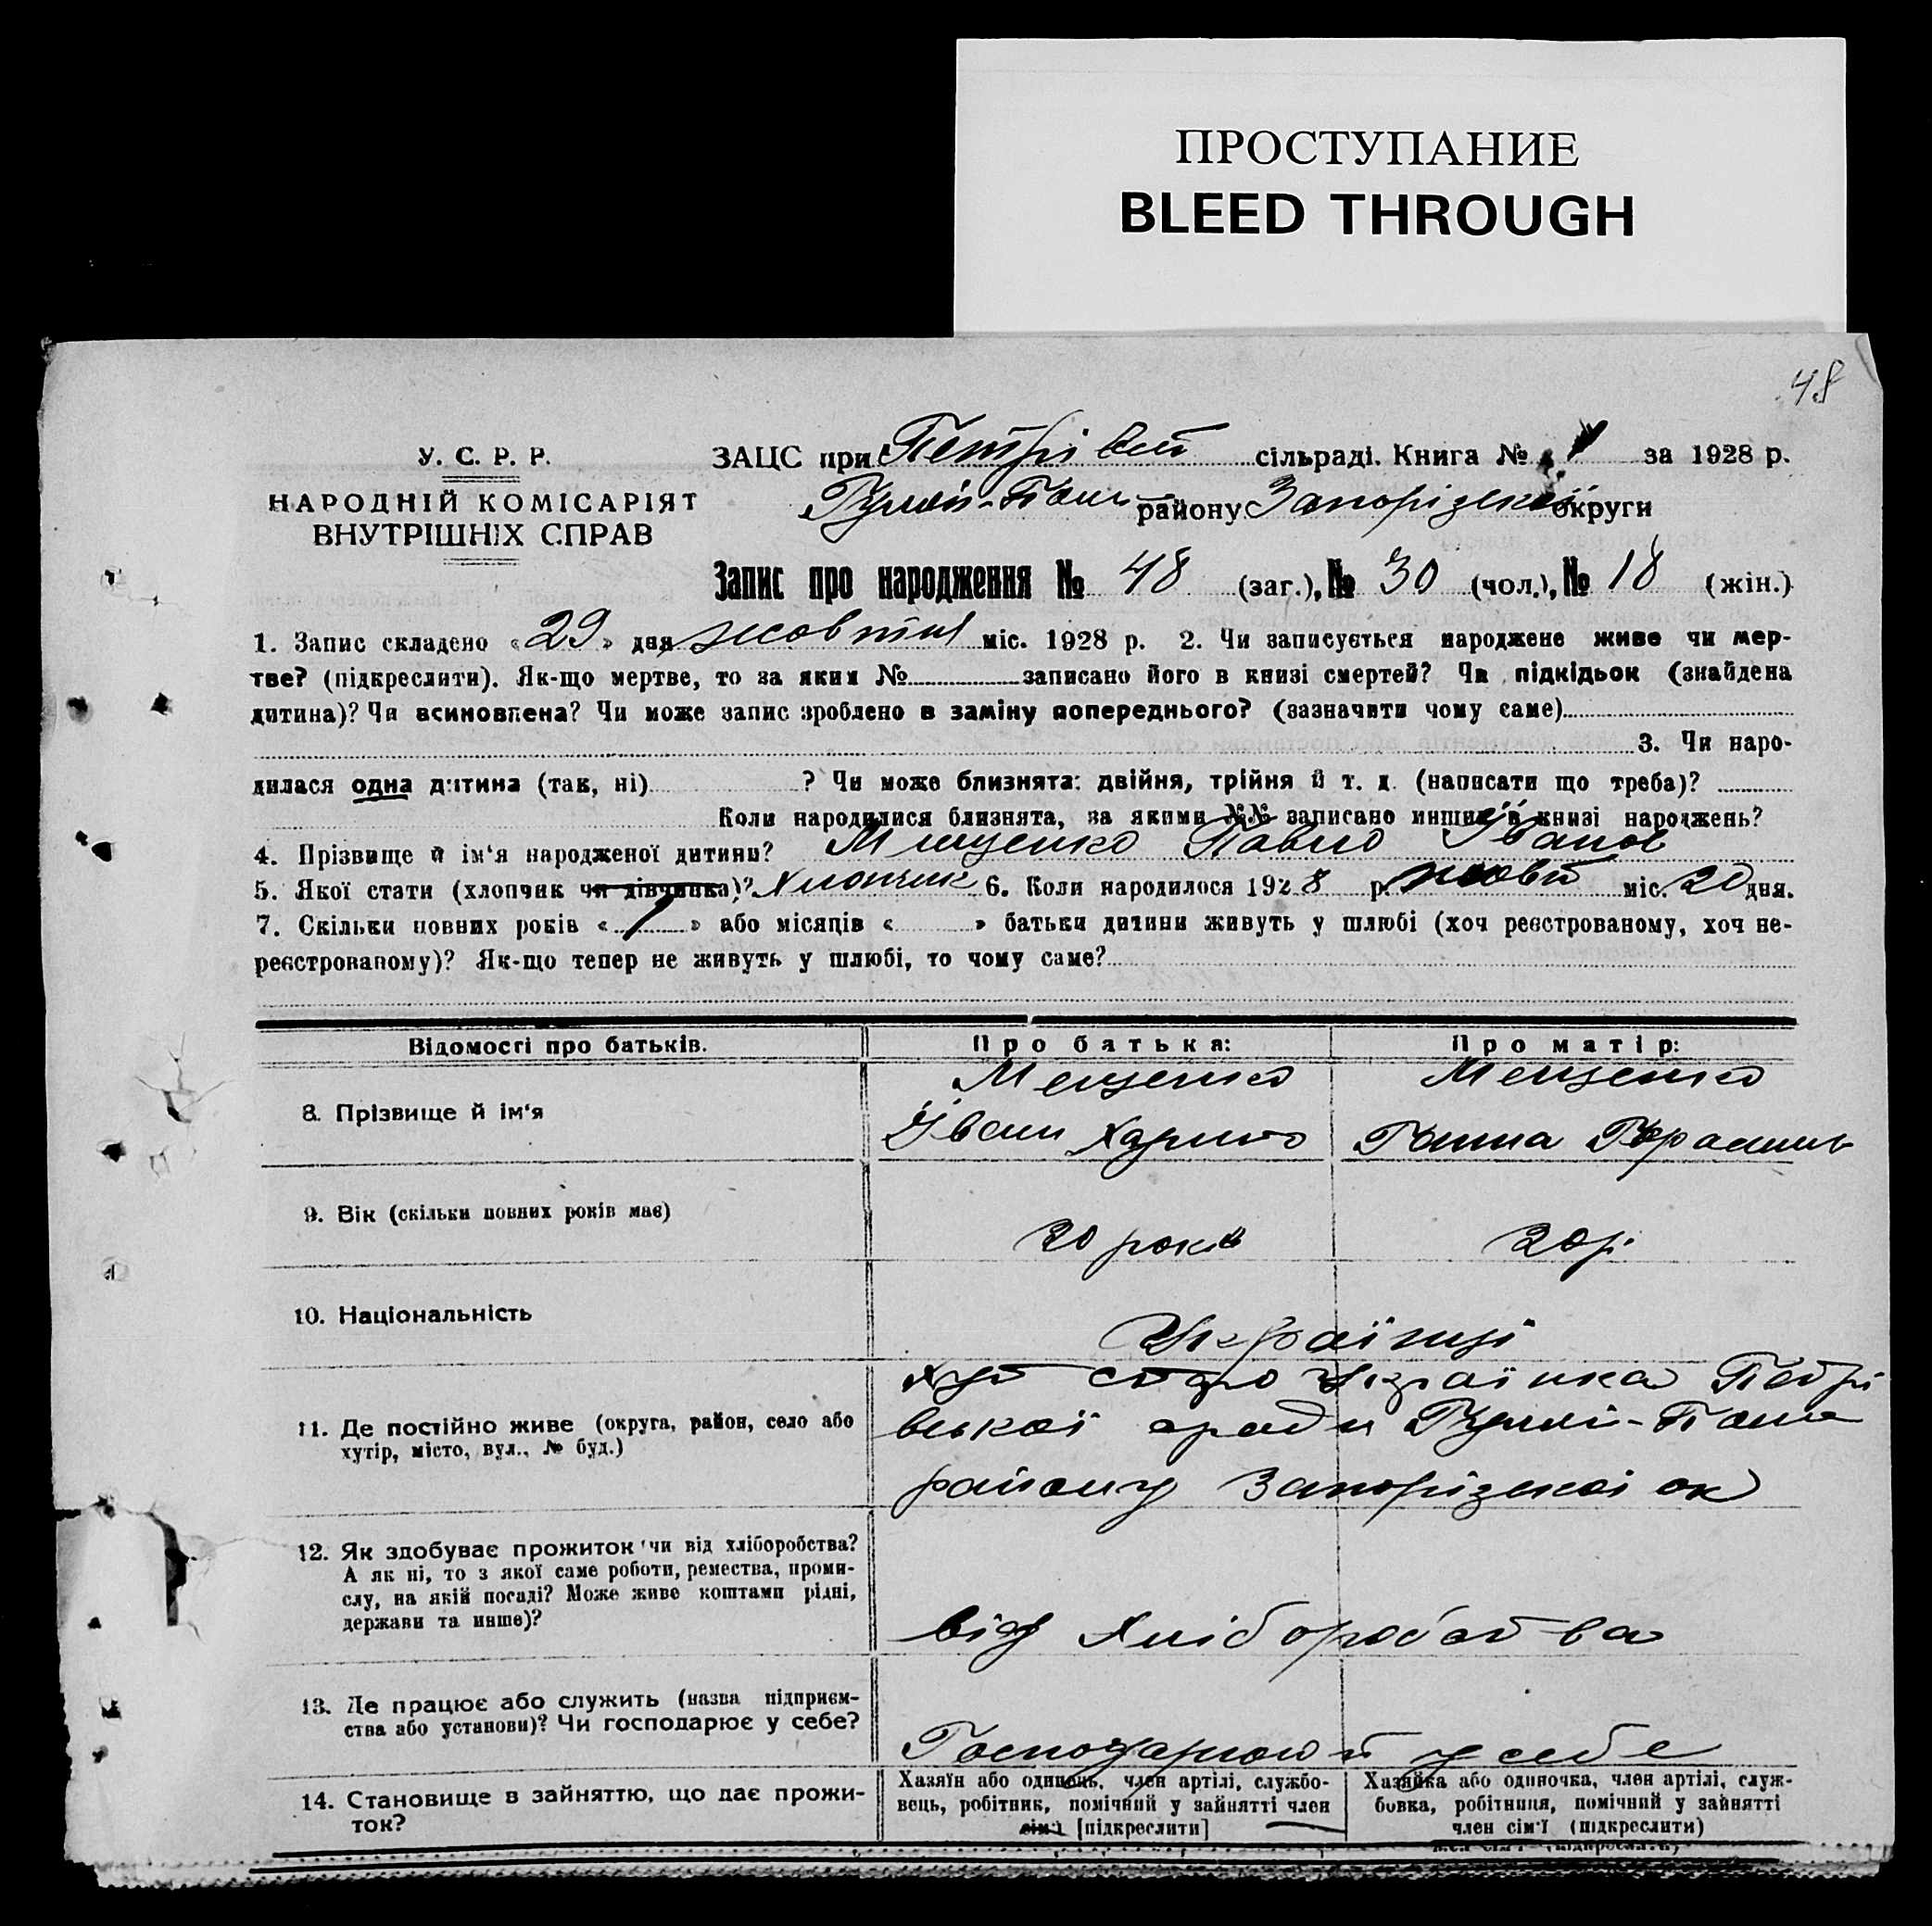 ПРОСТУПАНИЕ
BLEED THROUGH
48
У. С. Р. Р.
НАРОДНІЙ КОМІСАРІЯТ
ВНУТРІШНІХ СПРАВ
ЗАЦС при Петрівст сільраді. Книга № 1 за 1928 р.
Гуляй-Поль району Запорізької округи
Запис про народження № 48 (заг.), № 30 (чол.), № 18 (жін.)
1. Запис складено «29» дня жовтня міс. 1928 р. 2. Чи записується народжене живе чи мер-
тве? (підкреслити). Як-що мертве, то за яким № записано його в книзі смертей? Чи підкідьок (знайдена
дитина)? Чи всиновлена? Чи може запис зроблено в заміну попереднього? (зазначити чому саме)
3. Чи наро-
дилася одна дитина (так, ні) ? Чи може близнята: двійня, трійня й т. д. (написати що треба)?
Коли народилися близнята, за якими №№ записано инших в книзі народжень?
4. Прізвище й ім'я народженої дитини? Мищенко Павло Іванов
5. Якої стати (хлопчик чи дівчинка)? Хлопчик 6. Коли народилося 1928 р. жовт міс. 20 дня.
7. Скільки повних років «1» або місяців « » батьки дитини живуть у шлюбі (хоч реєстрованому, хоч не-
реєстрованому)? Як-що тепер не живуть у шлюбі, то чому саме?
Відомості про батьків. Про батька: Про матір:
8. Прізвище й ім'я
Мещенко
Іван
Мещенко
Ганна
9. Вік (скільки повних років має)
20 років
20 р.
10. Національність
Українці
11. Де постійно живе (округа, район, село або
хутір, місто, вул., № буд.)
хут Старо Українка Петрі
вської Гуляй-Поль
району Запорізької ок
12. Як здобуває прожиток чи від хліборобства?
А як ні, то з якої саме роботи, ремества, проми-
слу, на якій посаді? Може живе коштами рідні,
держави та инше)?
від хліборобства
13. Де працює або служить (назва підприєм-
ства або установи)? Чи господарює у себе?
Господарюют у себе
14. Становище в зайняттю, що дає прожи-
ток?
Хазяїн або одинець, член артілі, службо-
вець, робітник, помічний у зайнятті член
сім'ї [підкреслити]
Хазяйка або одиночка, член артілі, служ-
бовка, робітниця, помічний у зайнятті
член сім'ї (підкреслити)